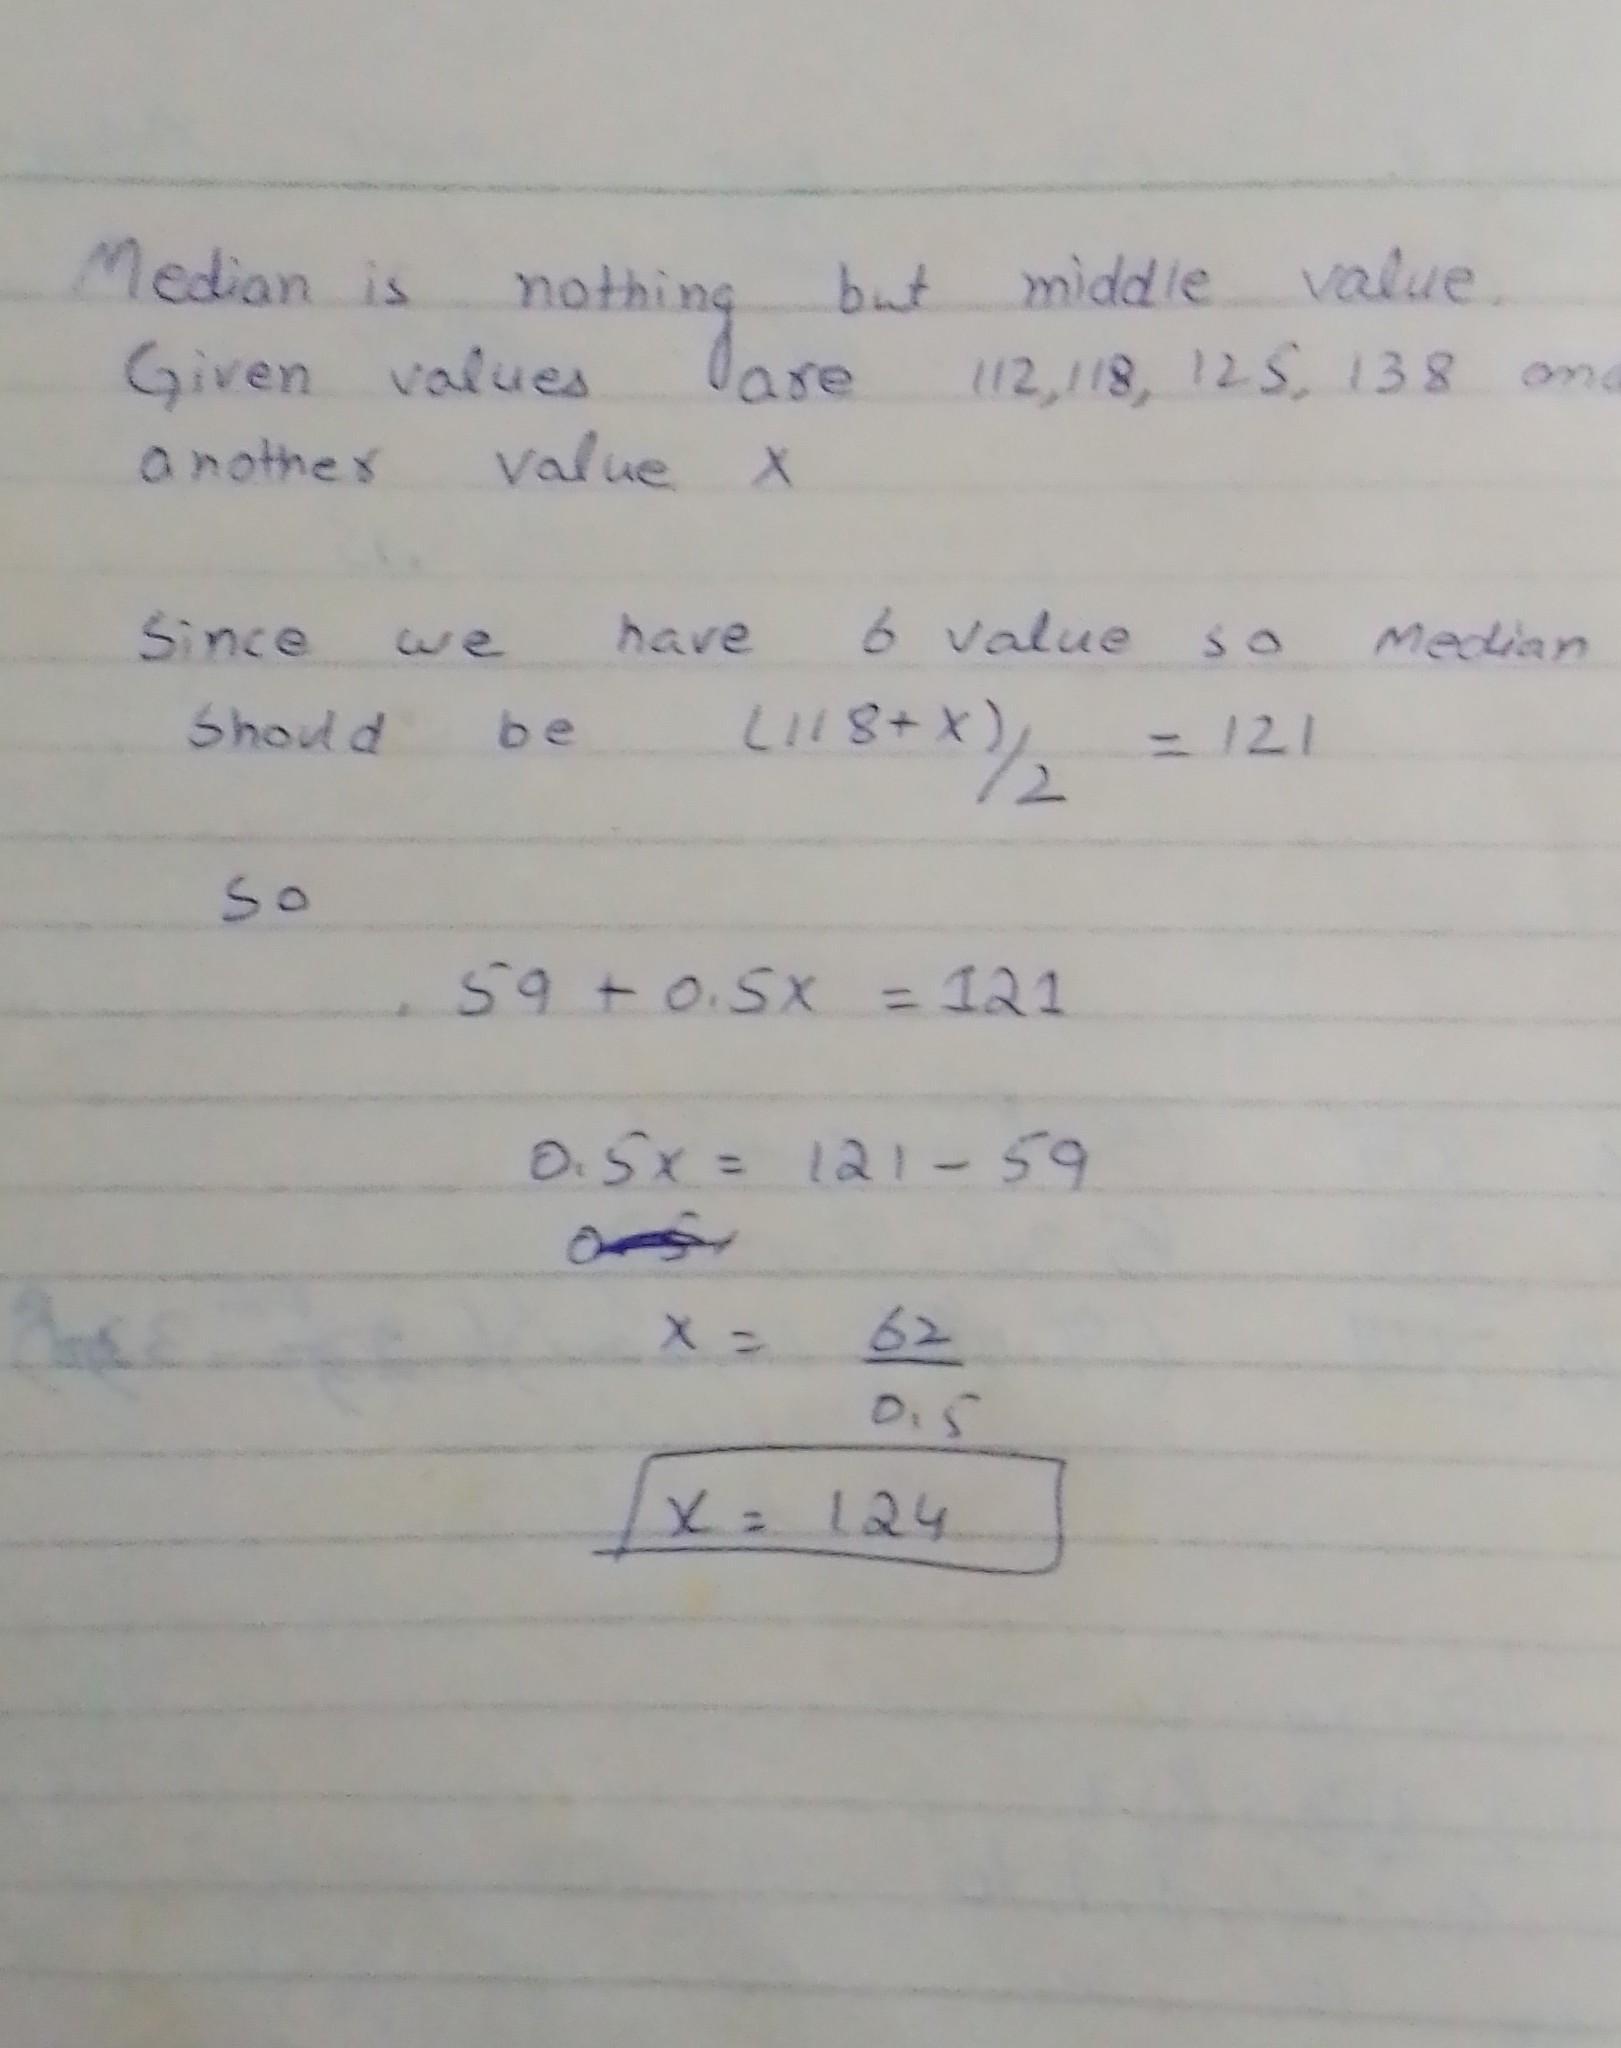 Median is nothing but middle value.
Given values are 112, 118, 125, 138 and
another value x
Since we have 6 value so Median
should be (118+x)/2 = 121
so
59 + 0.5x = 121
0.5x = 121 - 59
x = 62
0.5
x = 124